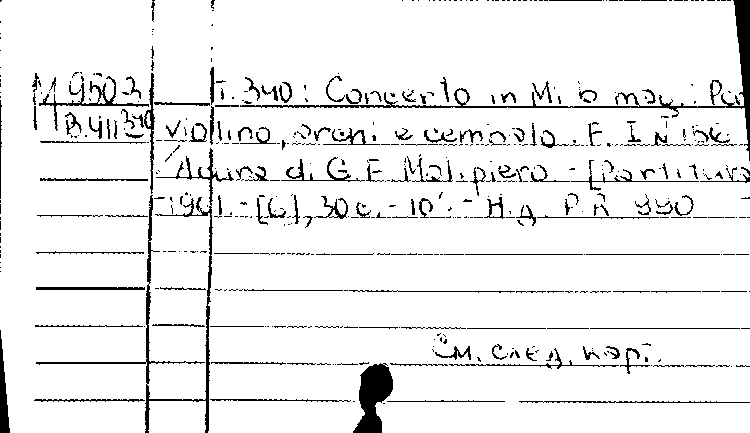 М 9503 Т. 340: Concerto in Mi b mag.: Per
В.411 340 violino, archi e cembalo. F. I N 156
A cura di G. F. Malipiero - [Partitura
-1961.-[6], 30 с. - 10'. - Н.д. P.R. 990
См. след. карт.